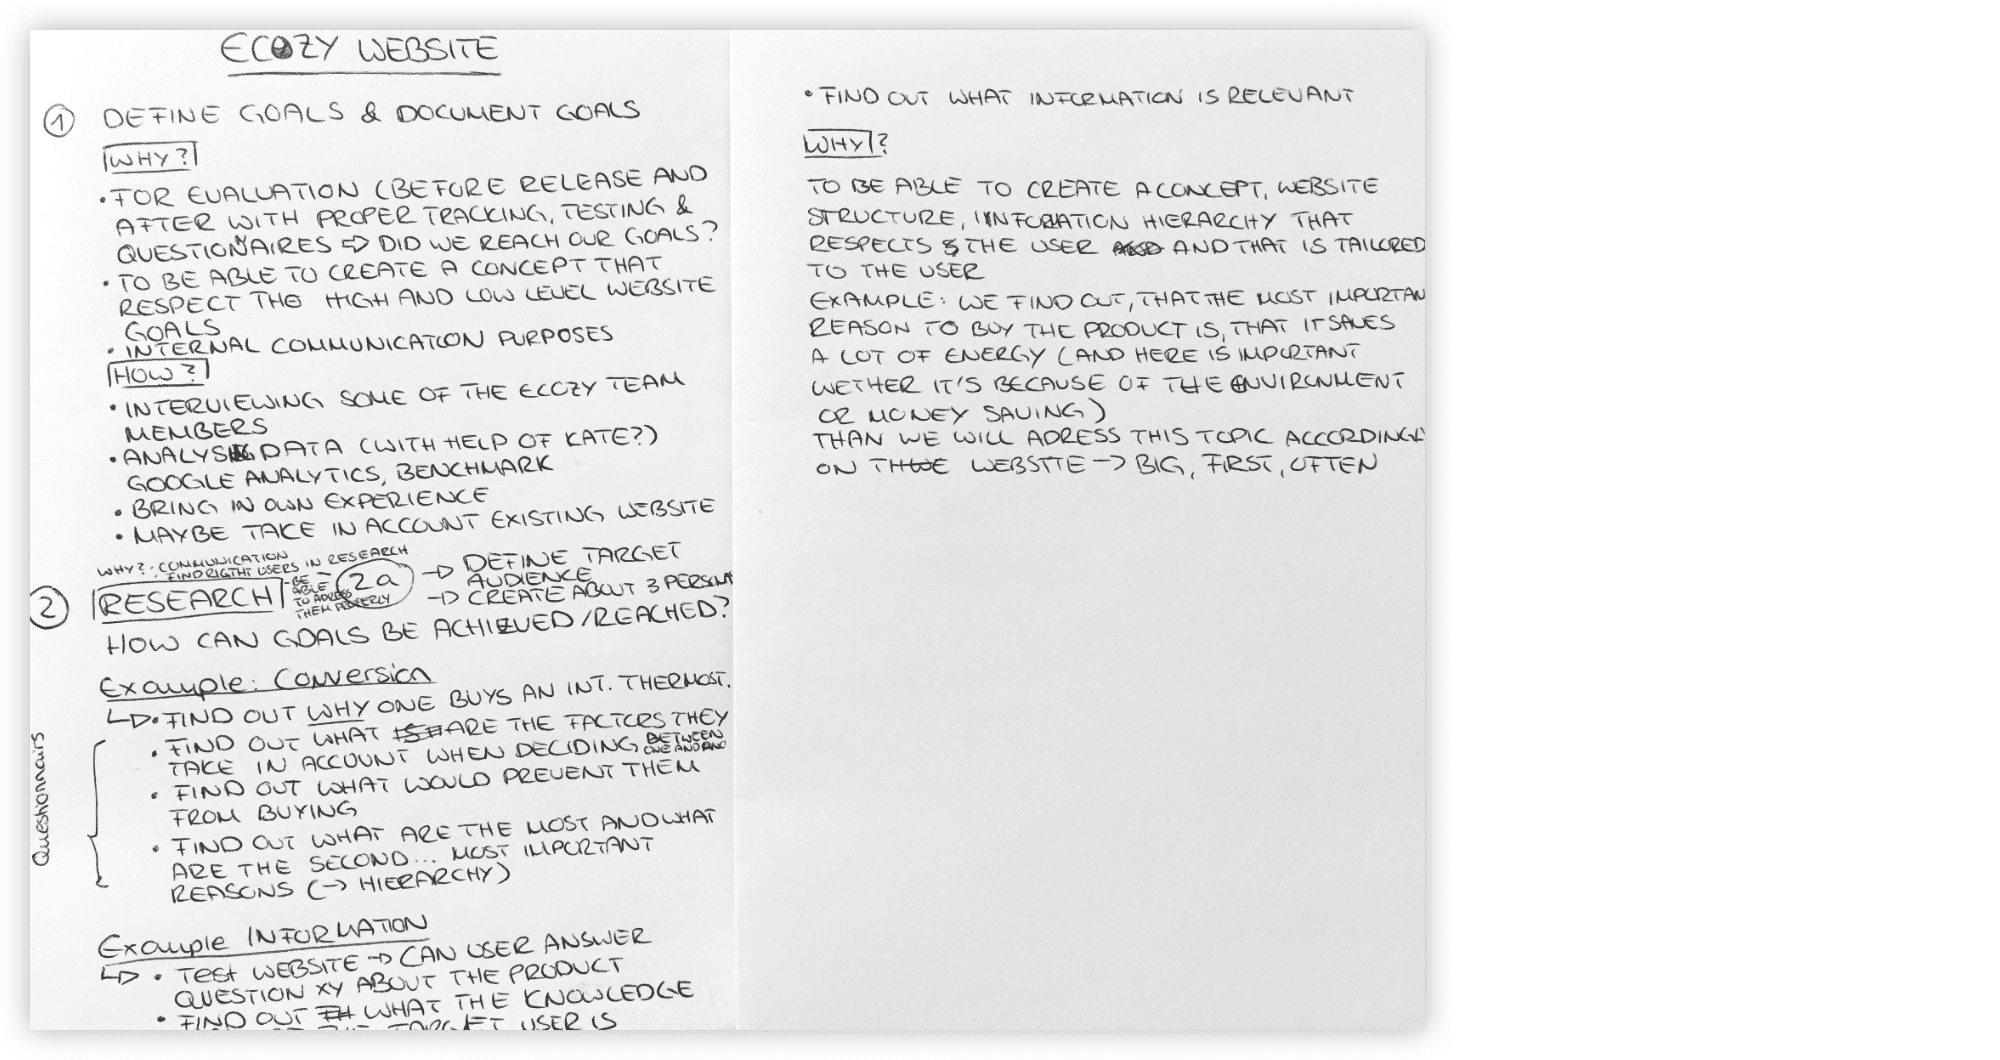 ECOZY WEBSITE
1 DEFINE GOALS & DOCUMENT GOALS
WHY?
• FOR EVALUATION (BEFORE RELEASE AND
AFTER WITH PROPER TRACKING, TESTING &
QUESTIONNAIRES ⇨ DID WE REACH OUR GOALS?
• TO BE ABLE TO CREATE A CONCEPT THAT
RESPECT THE HIGH AND LOW LEVEL WEBSITE
GOALS
• INTERNAL COMMUNICATION PURPOSES
HOW?
• INTERVIEWING SOME OF THE ECOZY TEAM
MEMBERS
• ANALYSING DATA (WITH HELP OF KATE?)
GOOGLE ANALYTICS, BENCHMARK
• BRING IN OWN EXPERIENCE
• MAYBE TAKE IN ACCOUNT EXISTING WEBSITE
WHY?: COMMUNICATION
FIND RIGTHT USERS IN RESEARCH
- BE
ABLE
TO ADRESS
THEM PROPERLY
2 RESEARCH
2a → DEFINE TARGET
AUDIENCE
→ CREATE ABOUT 3 PERSONA
HOW CAN GOALS BE ACHIEVED/REACHED?
Example: Conversion
↳ • FIND OUT WHY ONE BUYS AN INT. THERMOST.
Questionnairs
• FIND OUT WHAT ARE THE FACTORS THEY
TAKE IN ACCOUNT WHEN DECIDING BETWEEN
ONE AND
• FIND OUT WHAT WOULD PREVENT THEM
FROM BUYING
• FIND OUT WHAT ARE THE MOST AND WHAT
ARE THE SECOND... MOST IMPORTANT
REASONS (→ HIERARCHY)
Example INFORMATION
↳ • Test WEBSITE → CAN USER ANSWER
QUESTION XY ABOUT THE PRODUCT
• FIND OUT WHAT THE KNOWLEDGE
TARGET USER IS
• FIND OUT WHAT INFORMATION IS RELEVANT
WHY?
TO BE ABLE TO CREATE A CONCEPT, WEBSITE
STRUCTURE, INFORMATION HIERARCHY THAT
RESPECTS THE USER AND THAT IS TAILORED
TO THE USER
EXAMPLE: WE FIND OUT, THAT THE MOST IMPORTAN
REASON TO BUY THE PRODUCT IS, THAT IT SAVES
A LOT OF ENERGY (AND HERE IS IMPORTANT
WETHER IT'S BECAUSE OF THE ENVIRONMENT
OR MONEY SAVING)
THAN WE WILL ADRESS THIS TOPIC ACCORDINGLY
ON THE WEBSITE → BIG, FIRST, OFTEN